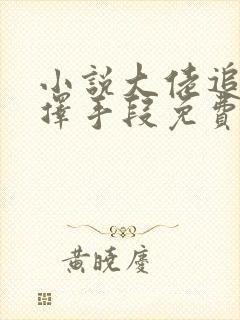 小說大佬追
擇手段免費
黃曉慶